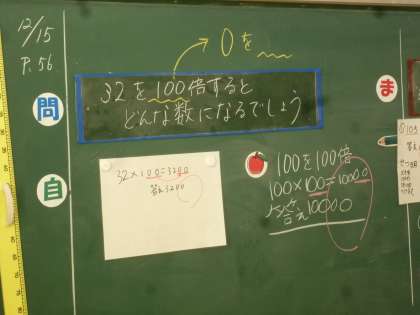 12/15
P.56
0を
問
32を100倍すると
どんな数になるでしょう
ま
自
32×100=3200
答え3200
100を100倍
100×100=10000
答え10000